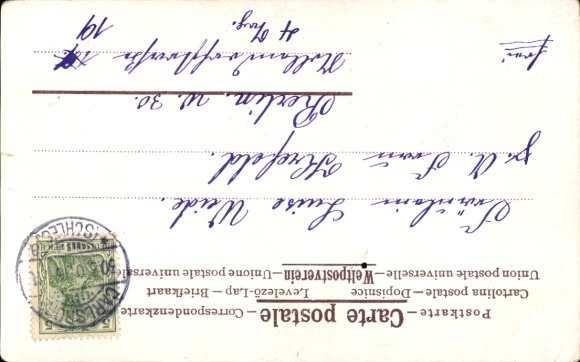 Postkarte – Carte postale – Correspondenzkarte
Cartolina postale – Dopisnice – Levelező-Lap – Briefkaart
Union postale universelle – Weltpostverein – Unione postale universale
Fräulein Luise Weide.
p. A. Frau Krefeld.
Berlin. W. 30.
19
4 Trg.
frei